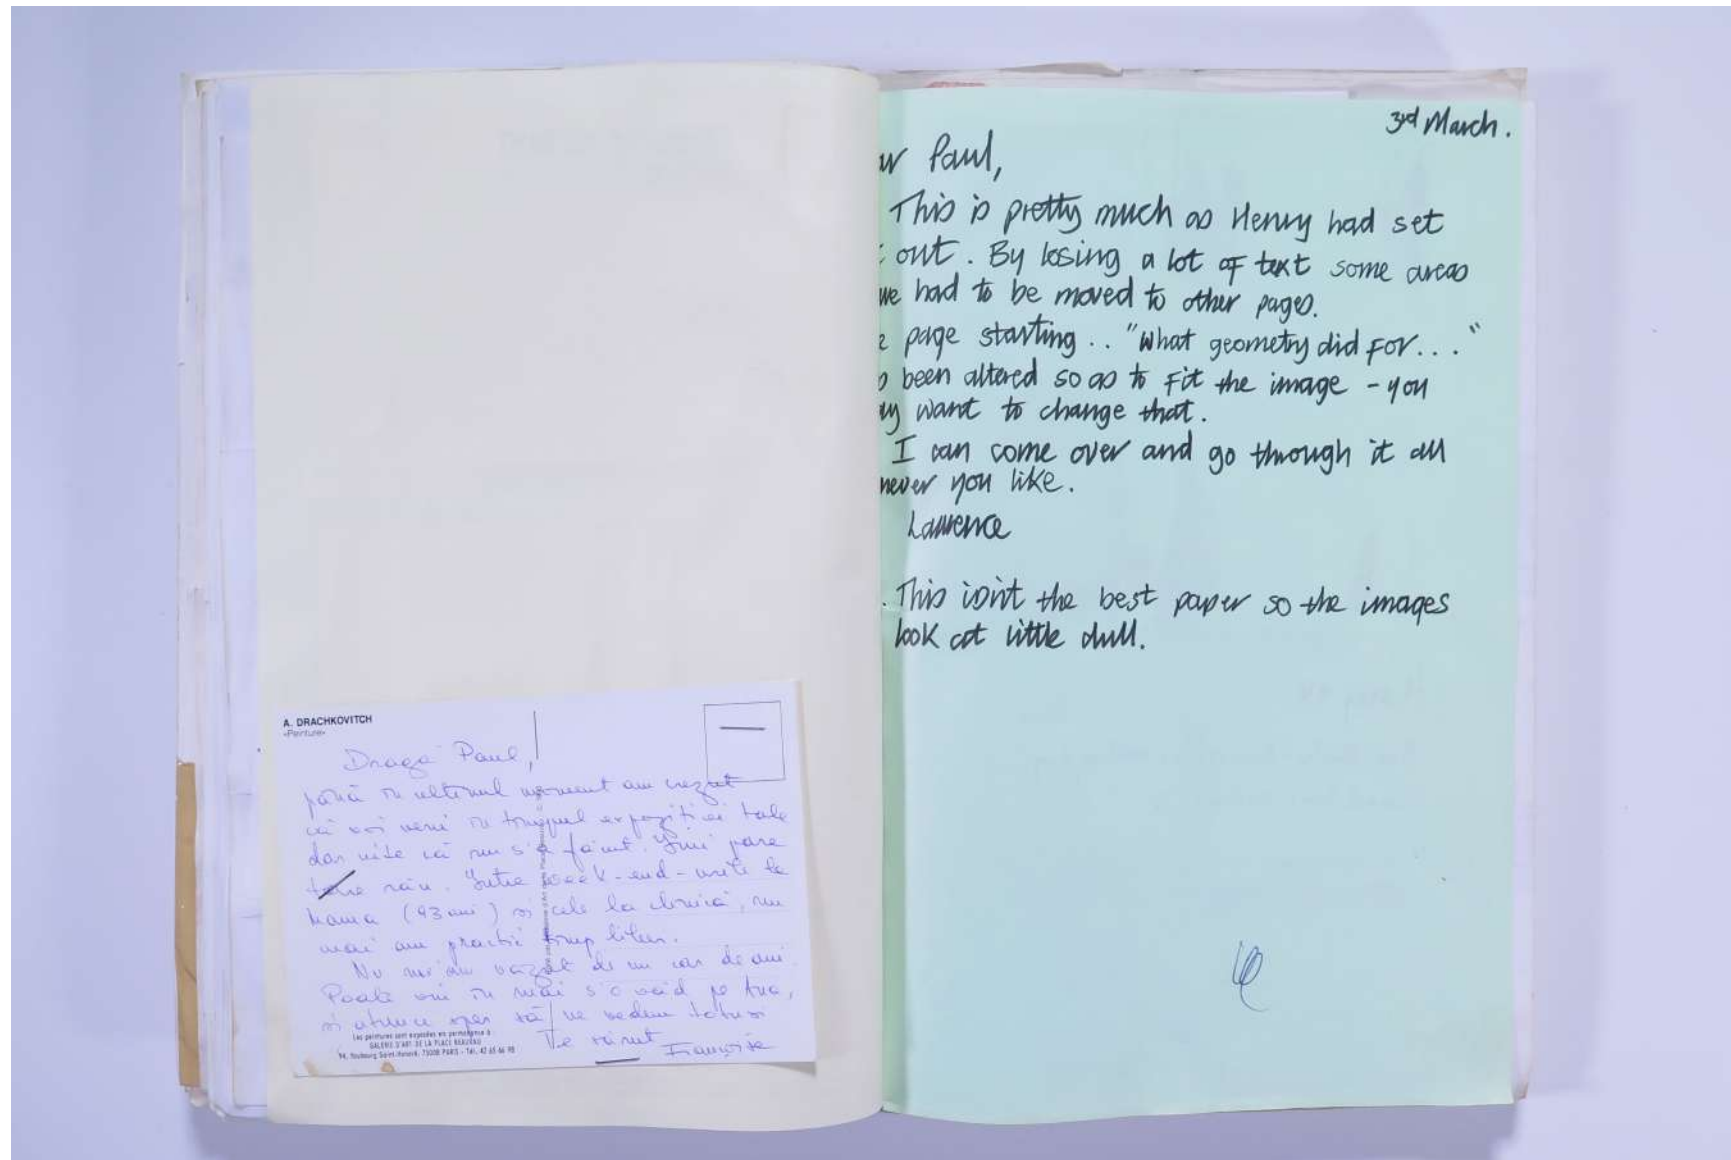 A. DRACHKOVITCH
«Peinture»
Dragă Paul,
până în ultimul moment am crezut
că voi veni în timpul expoziției tale
dar uite că nu s'a făcut. Îmi pare
rău. Între week-end-urile la
mama (93 ani) și cele la clinică, nu
mai am practic timp liber.
Nu ne'am văzut de un car de ani.
Poate vii în mai s'o vezi pe Ana,
și atunci sper să ne vedem totuși
Te sărut
Françoise
Les peintures sont exposées en permanence à
GALERIE D'ART DE LA PLACE BEAUVAU
94, Faubourg Saint-Honoré, 75008 PARIS - Tél. 42 65 66 98
3rd March.
ar Paul,
This is pretty much as Henry had set
out. By losing a lot of text some areas
ve had to be moved to other pages.
e page starting.. "What geometry did for..."
s been altered so as to fit the image - you
ay want to change that.
I can come over and go through it all
never you like.
Lawrence
. This isn't the best paper so the images
look at little dull.